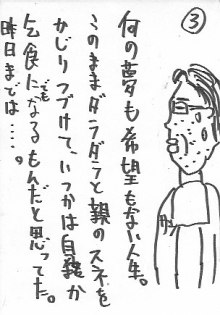 ③
何の夢も希望もない人生。
このままダラダラと親のスネを
かじりつづけて、いつかは自殺か
乞食にでもなるもんだと思ってた。
昨日までは……。